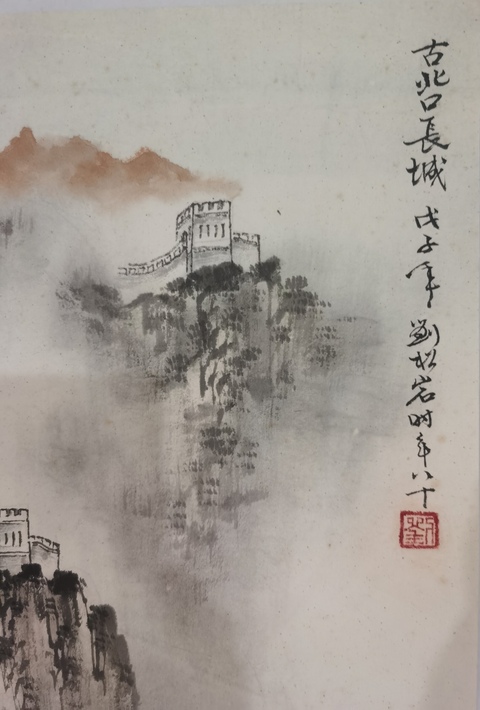 古北口長城 戊子年 劉松岩时年八十
劉